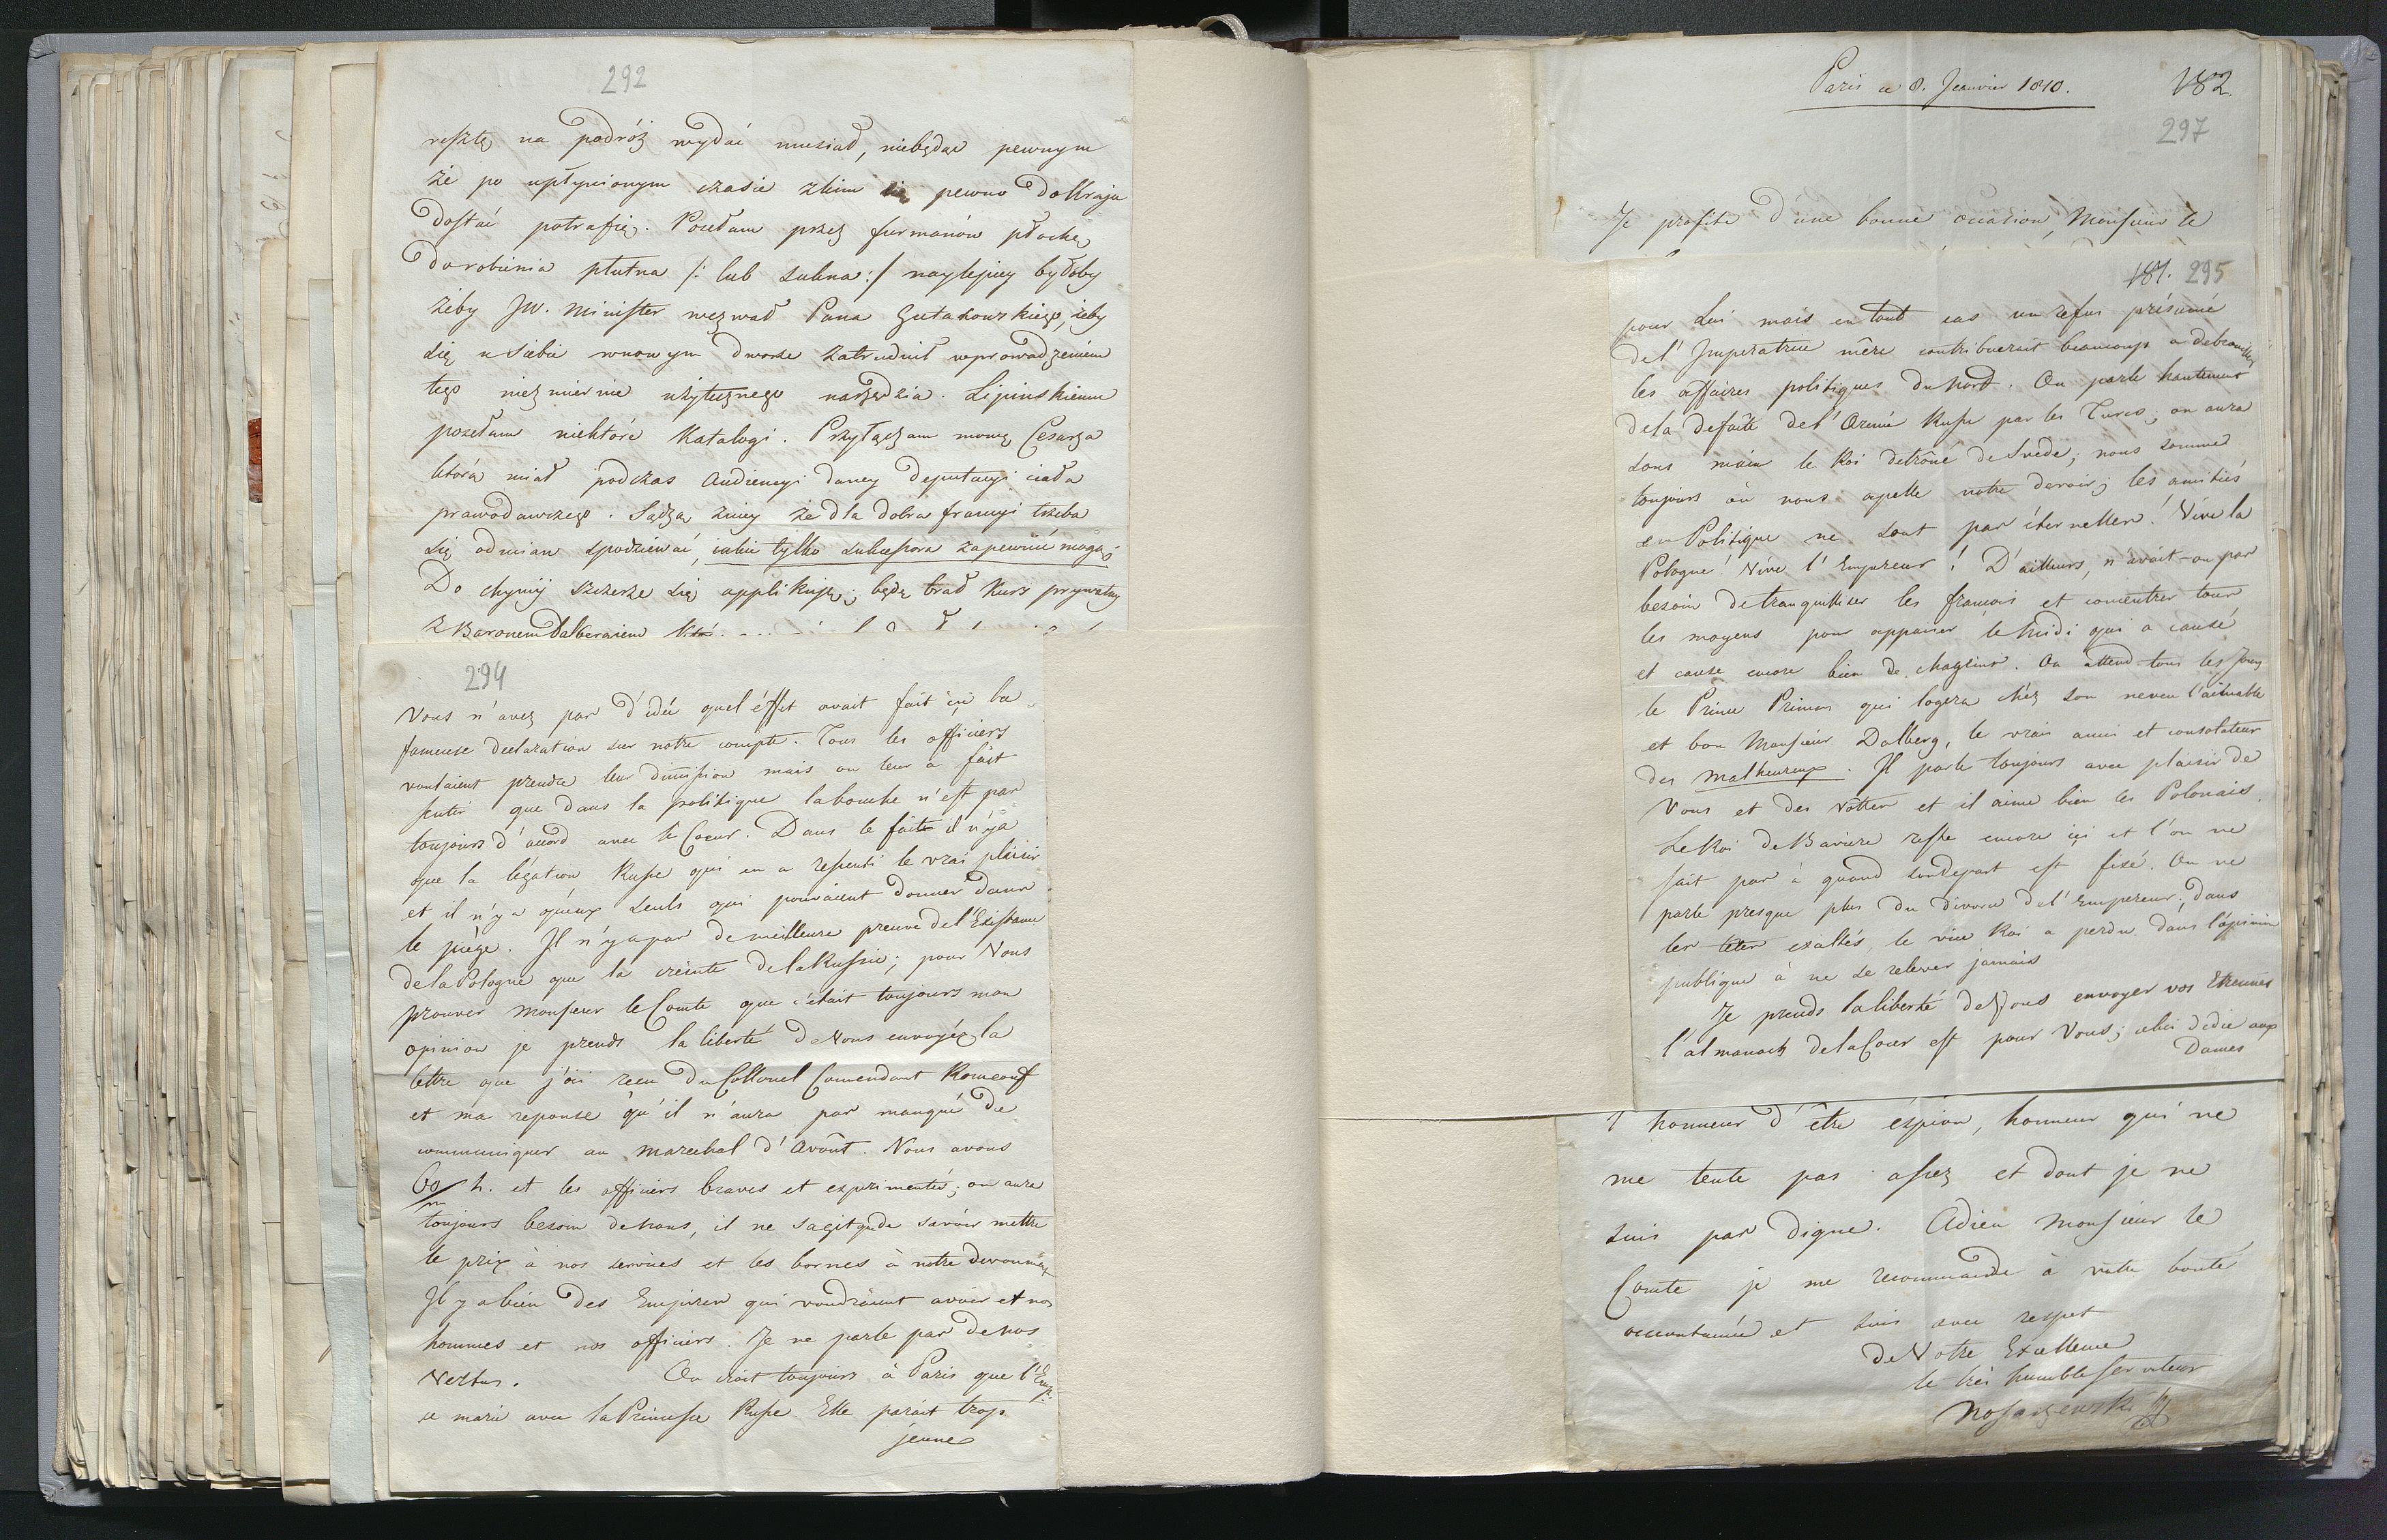 292
resztę na podróż wydać musiał, niebędąc pewnym
że po upłynionym czasie zkim się pewno do Kraju
dostać potrafię. Posełam przez furmanów płochę
do robienia płutna /: lub sukna :/ naylepiey byłoby
żeby JW. Minister wezwał Pana Gutakowskiego, żeby
się u siebie wnowym dworze zatrudnił wprowadzeniem
tego niezmiernie użytecznego narzędzia. Lipinskiemu
posełam niektóre Katalogi. Przyłączam mowę Cesarza
którą miał podczas Audiencyi daney deputacyi ciała
prawodawczego. Sądzą zniey że dla dobra francyi trzeba
się odmian spodziewać, jakie tylko sukcessora zapewnić mogą.
Do chymij szczerze się applikuję; będę brał kurs prywatny
z Baronem Dalbergiem
294
Vous n'avez pas d'idée quel éffet avait fait içi la
fameuse declaration sur notre compte. Tous les officiers
voulaient prendre leur dimission mais on leur a fait
sentir que dans la politique la bouche n'est pas
toujours d'accord avec le Coeur. Dans le faite il n'ya
que la légation Russe qui en a ressenti le vrai plaisir
et il n'y a qu'eux seuls qui pouvaient donner dans
le piège. Il n'y a pas de meilleure preuve de l'Existance
de la Pologne que la creinte de la Russie; pour Vous
prouver Monsieur le Comte que c'était toujours mon
opinion je prends la liberté de Vous envoyér la
lettre que j'ai recu du Collonel Comendant Romeouf
et ma reponse qu'il n'aura pas manqué de
communiquer au Marechal d'Avoût. Nous avons
60/m h. et les officiers braves et experimentés; on aura
toujours besoin de nous, il ne sagit que de savoir mettre
le prix à nos services et les bornes à notre devoument
Il y a bien des Empires qui voudraient avoir et nos
hommes et nos officiers. Je ne parle pas de nos
Vertus. On croit toujours à Paris que l'Emp.
se marie avec la Princesse Russe. Elle parait trop
jeune
Paris ce 8. Jeanvier 1810.
182.
297
Je profite d'une bonne occasion, Monsieur le
181. 295
pour Lui mais en tout cas un refus présumé
de l'Imperatrice mère contribuerait beaucoup a debrouiller
les affaires politiques du Nord. On parle hautement
de la defaite de l'Armée Russe par les Turcs; on aura
sous main le Roi detrôné de Suede; nous sommes
toujours ou nous apelle notre devoir; les amitiés
en Politique ne sont pas éternelles! Vive la
Pologne! Vive l'Empereur! D'ailleurs, n'avait-on pas
besoin de tranquilliser les francois et concentrer tous
les moyens pour appaiser le Midi qui a causé
et cause encore bien de chagrins. On attend tous les jours
le Prince Primas qui logera chéz son neveu l'aimable
et bon Monsieur Dalberg, le vrai ami et consolateur
des malheureux. Il parle toujours avec plaisir de
Vous et des Vôtres et il aime bien les Polonais.
Le Roi de Baviere reste encore içi et l'on ne
sait pas à quand son depart est fixé. On ne
parle presque plus du divorce de l'Empereur; dans
les têtes exaltés, le vice Roi a perdu dans l'opinion
publique à ne se relever jamais
Je prends la liberté de Vous envoyer vos Etrennes
l'almanach de la Cour est pour Vous; celui dedié aux
Dames
l'honneur d'être éspion, honneur qui ne
me tente pas assez et dont je ne
suis pas digne. Adieu Monsieur le
Comte je me recommande à votre bonté
accoutumée et suis avec respet
de Votre Excellence
le très humble serviteur